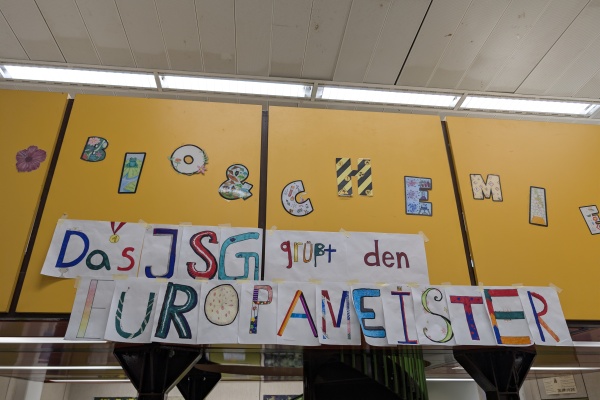 BIO & CHEMI
Das JSG grüßt den
EUROPAMEISTER